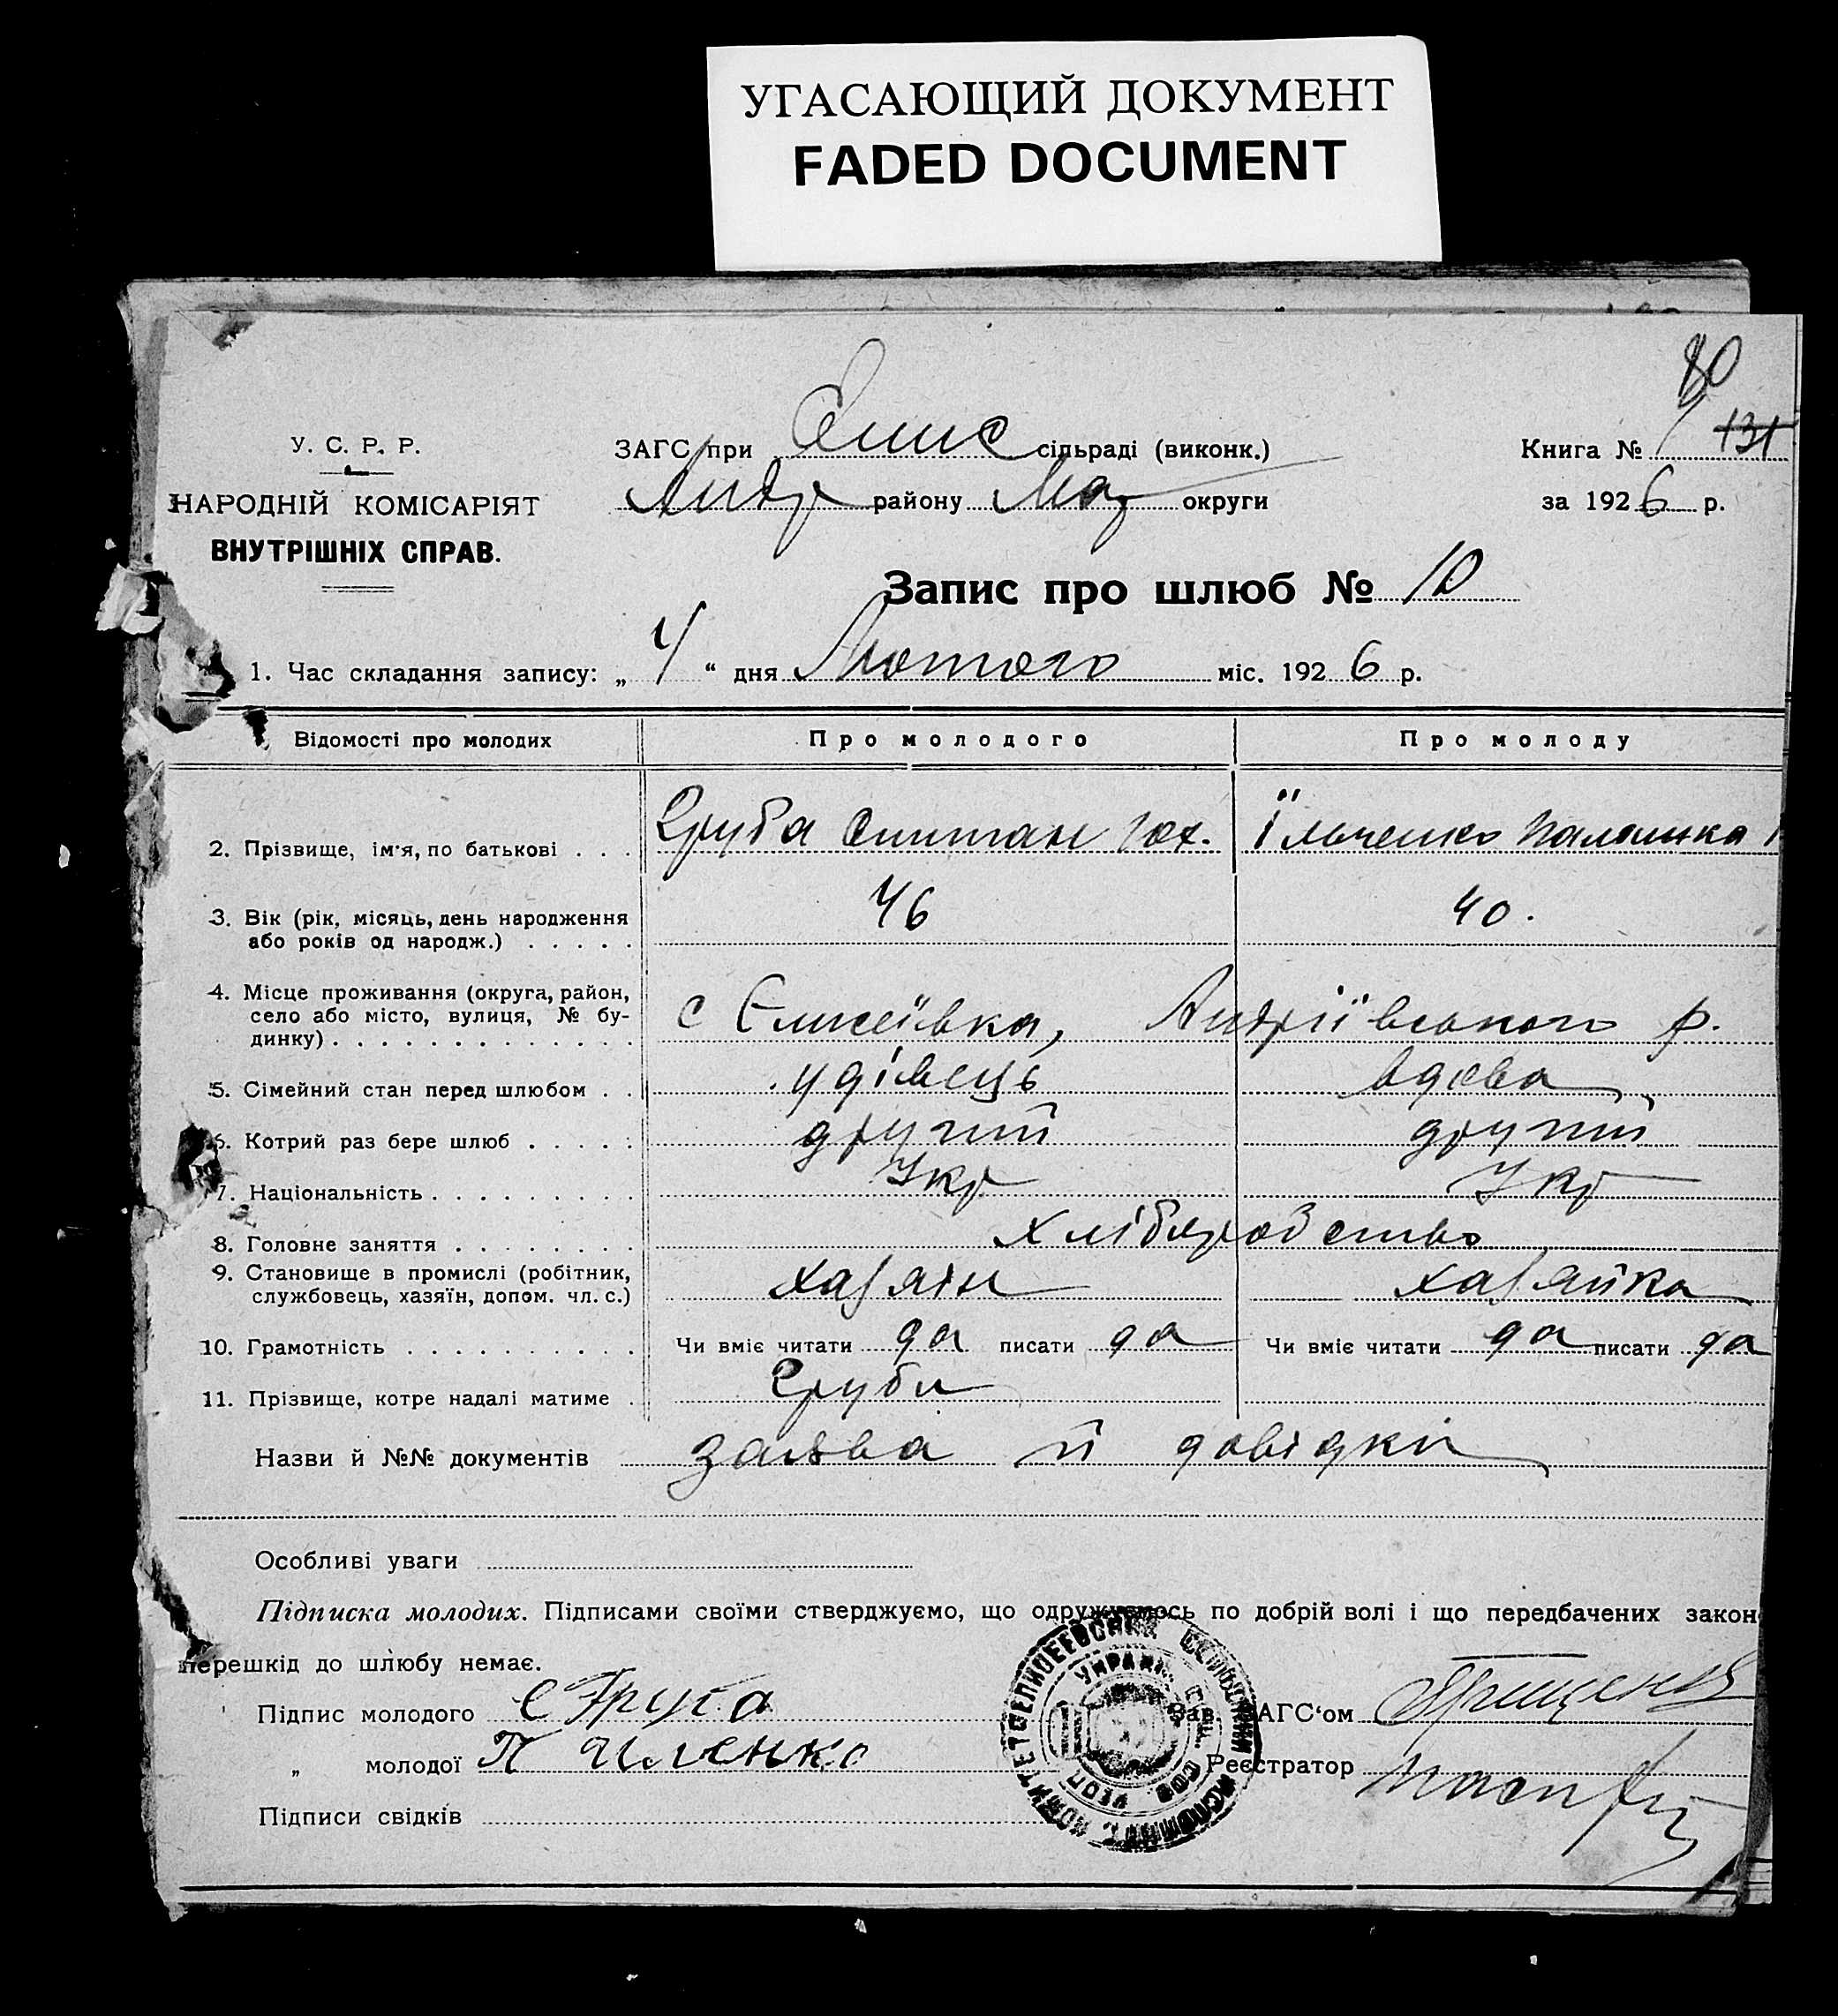 УГАСАЮЩИЙ ДОКУМЕНТ
FADED DOCUMENT
80
У. С. Р. Р.
ЗАГС при Єлис сільраді (виконк.)
Книга № 131
НАРОДНІЙ КОМІСАРІЯТ
Андр району Мар округи
за 1926 р.
ВНУТРІШНІХ СПРАВ.
Запис про шлюб № 10
1. Час складання запису: „ 4 “ дня Лютого міс. 1926 р.
Відомості про молодих
Про молодого
Про молоду
2. Прізвище, ім'я, по батькові . . . Груба Степан Юх. Їльченко Палашка
3. Вік (рік, місяць, день народження
або років од народж.) . . . . . 46 40.
4. Місце проживання (округа, район,
село або місто, вулиця, № бу-
динку) . . . . . . . . . . . . . . с Єлисеївка, Андріївського р.
5. Сімейний стан перед шлюбом . . удівець вдова
6. Котрий раз бере шлюб . . . . . другий другий
7. Національність . . . . . . . . . Укр Укр
8. Головне заняття . . . . . . . . хліборобство
9. Становище в промислі (робітник,
службовець, хазяїн, допом. чл. с.) хазяін хазяйка
10. Грамотність . . . . . . . . . . Чи вміє читати да писати да Чи вміє читати да писати да
11. Прізвище, котре надалі матиме . Груби
Назви й №№ документів заява й довідки
Особливі уваги
Підписка молодих. Підписами своїми стверджуємо, що одружуємось по добрій волі і що передбачених закон
перешкід до шлюбу немає.
Підпис молодого С Груба
Зав. ЗАГС‘ом
„ молодої П Иленко
Реєстратор
Підписи свідків